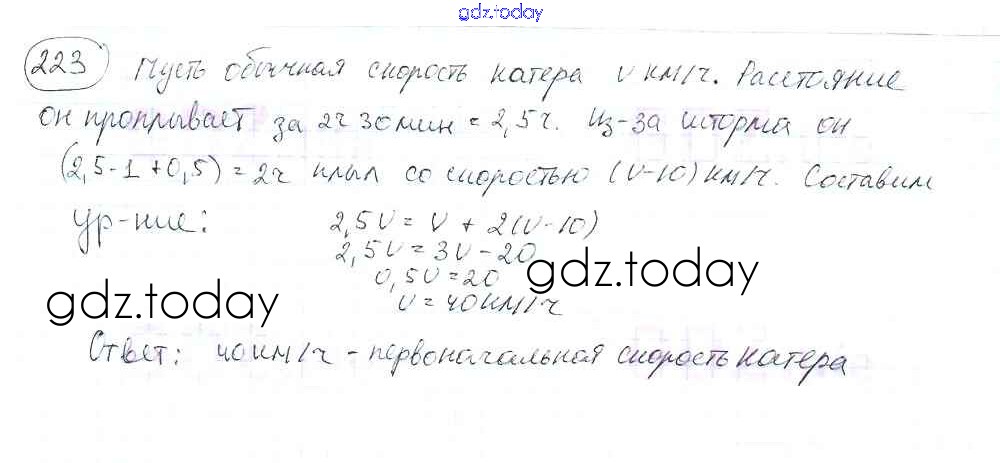 gdz.today
223 Пусть обычная скорость катера v км/ч. Расстояние
он проплывает за 2ч 30мин = 2,5ч. Из-за шторма он
(2,5-1+0,5) = 2ч плыл со скоростью (v-10) км/ч. Составим
ур-ние: 2,5v = v + 2(v-10)
2,5v = 3v - 20
0,5v = 20
v = 40км/ч
gdz.today gdz.today
Ответ: 40км/ч - первоначальная скорость катера